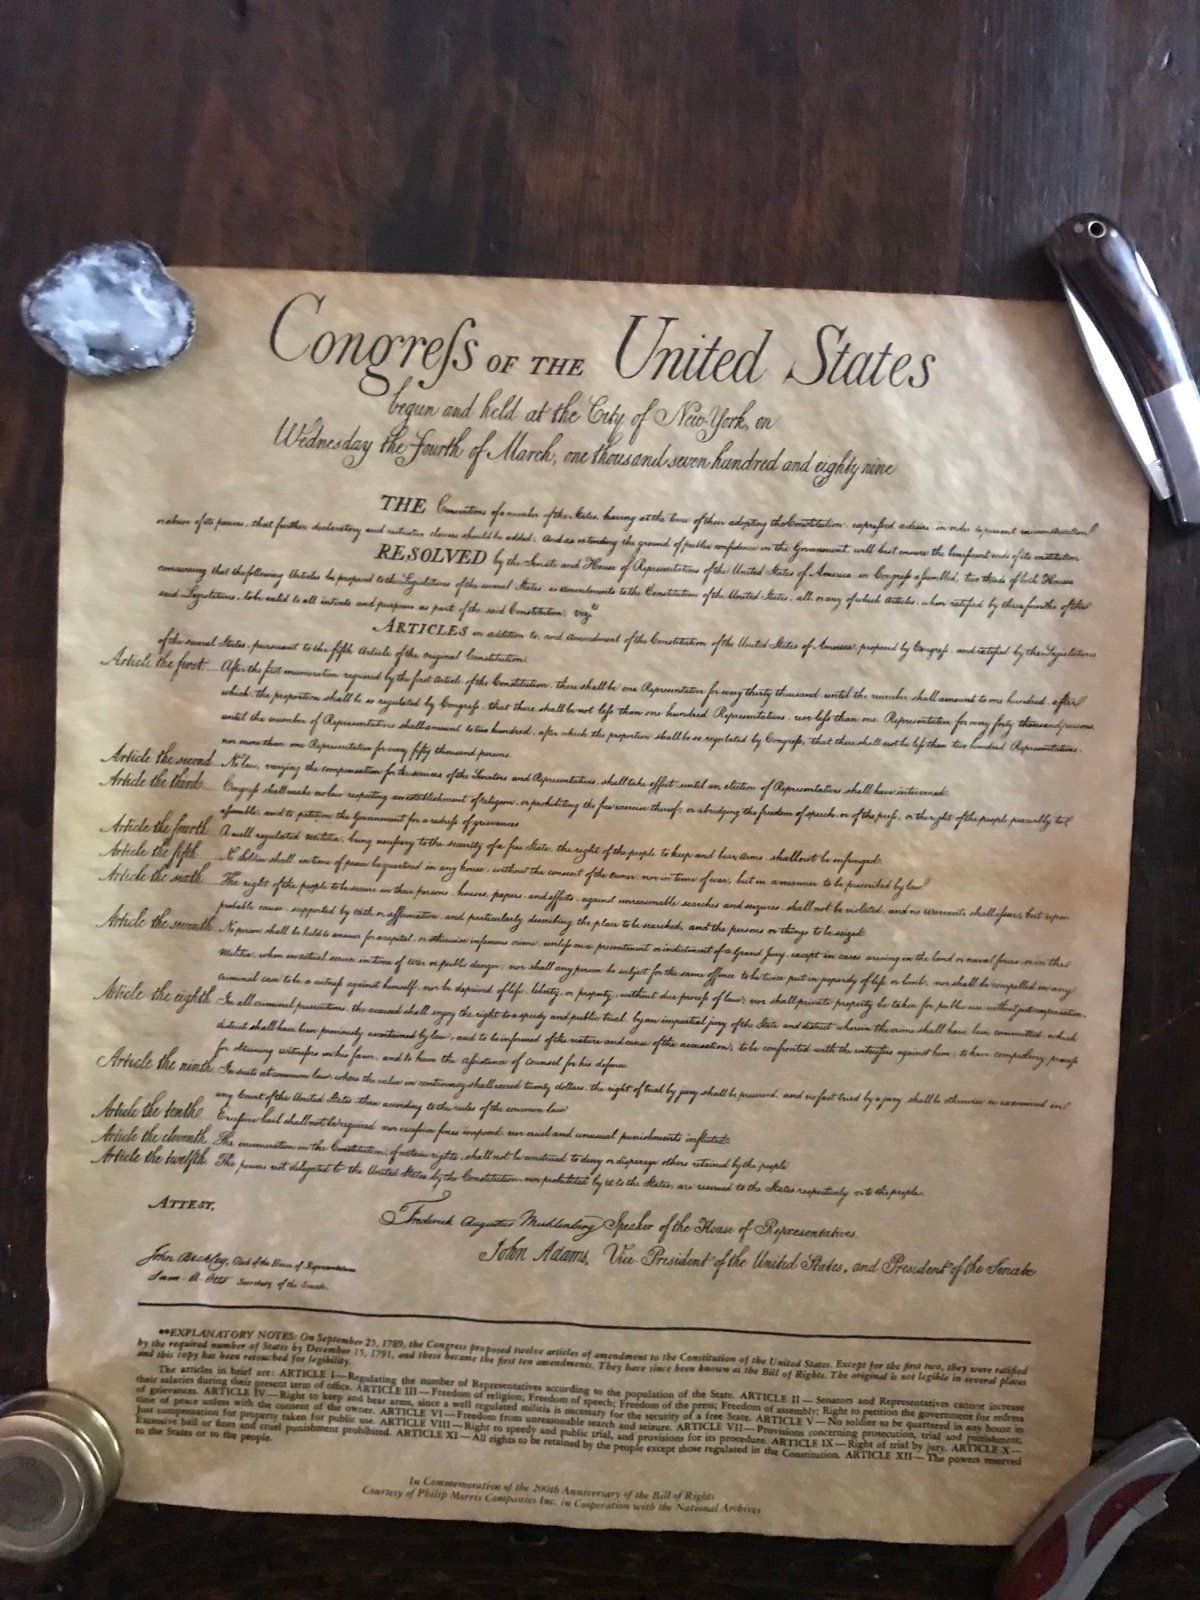 Congreſs OF THE United States
begun and held at the City of New-York, on
Wednesday the Fourth of March, one thousand seven hundred and eighty nine
THE Conventions of a number of the States, having at the time of their adopting the Constitution, expreſsed a desire, in order to prevent misconstruction
or abuse of its powers, that further declaratory and restrictive clauses should be added: And as extending the ground of public confidence in the Government, will best insure the beneficent ends of its institution
RESOLVED by the Senate and House of Representatives of the United States of America in Congreſs aſsembled, two thirds of both Houses
concurring that the following Articles be proposed to the Legislatures of the several States, as amendments to the Constitution of the United States, all or any of which Articles, when ratified by three fourths of the
said Legislatures, to be valid to all intents and purposes, as part of the said Constitution, vizt.
ARTICLES in addition to, and amendment of the Constitution of the United States of America, proposed by Congreſs, and ratified by the Legislatures
of the several States, pursuant to the fifth Article of the original Constitution.
Article the first.... After the first enumeration required by the first Article of the Constitution, there shall be one Representative for every thirty thousand, until the number shall amount to one hundred, after
which, the proportion shall be so regulated by Congreſs, that there shall be not leſs than one hundred Representatives, nor leſs than one Representative for every forty thousand persons,
until the number of Representatives shall amount to two hundred, after which the proportion shall be so regulated by Congreſs, that there shall not be leſs than two hundred Representatives,
nor more than one Representative for every fifty thousand persons.
Article the second... No law, varying the compensation for the services of the Senators and Representatives, shall take effect, until an election of Representatives shall have intervened.
Article the third.... Congreſs shall make no law respecting an establishment of religion, or prohibiting the free exercise thereof; or abridging the freedom of speech, or of the preſs, or the right of the people peaceably to
aſsemble, and to petition the Government for a redreſs of grievances.
Article the fourth. A well regulated Militia, being neceſsary to the security of a free State, the right of the people to keep and bear Arms, shall not be infringed.
Article the fifth.... No Soldier shall, in time of peace be quartered in any house, without the consent of the owner, nor in time of war, but in a manner to be prescribed by law.
Article the sixth.... The right of the people to be secure in their persons, houses, papers, and effects, against unreasonable searches and seizures, shall not be violated, and no Warrants shall iſsue, but upon
probable cause, supported by oath or affirmation, and particularly describing the place to be searched, and the persons or things to be seized.
Article the seventh. No person shall be held to answer for a capital, or otherwise infamous crime, unleſs on a presentment or indictment of a Grand Jury, except in cases arising in the land or naval forces, or in the
Militia, when in actual service in time of War or public danger; nor shall any person be subject for the same offence to be twice put in jeopardy of life or limb, nor shall be compelled in any
criminal case to be a witneſs against himself, nor be deprived of life, liberty, or property, without due proceſs of law; nor shall private property be taken for public use without just compensation.
Article the eighth. In all criminal prosecutions, the accused shall enjoy the right to a speedy and public trial, by an impartial jury of the State and district wherein the crime shall have been committed, which
district shall have been previously ascertained by law, and to be informed of the nature and cause of the accusation; to be confronted with the witneſses against him; to have compulsory proceſs
for obtaining witneſses in his favor, and to have the Aſsistance of Counsel for his defence.
Article the ninth. In suits at common law, where the value in controversy shall exceed twenty dollars, the right of trial by jury shall be preserved, and no fact tried by a jury shall be otherwise re examined in
any Court of the United States, than according to the rules of the common law.
Article the tenth. Exceſsive bail shall not be required nor exceſsive fines imposed, nor cruel and unusual punishments inflicted.
Article the eleventh. The enumeration in the Constitution, of certain rights, shall not be construed to deny or disparage others retained by the people.
Article the twelfth. The powers not delegated to the United States by the Constitution, nor prohibited by it to the States, are reserved to the States respectively or to the people.
ATTEST,
Frederick Augustus Muhlenberg Speaker of the House of Representatives.
John Adams, Vice-President of the United States, and President of the Senate
John Beckley, Clerk of the House of Representatives.
Sam. A. Otis Secretary of the Senate.
**EXPLANATORY NOTES: On September 25, 1789, the Congress proposed twelve articles of amendment to the Constitution of the United States. Except for the first two, they were ratified
by the required number of States by December 15, 1791, and these became the first ten amendments. They have since been known as the Bill of Rights. The original is not legible in several places
and this copy has been retouched for legibility.
The articles in brief are: ARTICLE I—Regulating the number of Representatives according to the population of the State. ARTICLE II—Senators and Representatives cannot increase
their salaries during their present term of office. ARTICLE III—Freedom of religion; Freedom of speech; Freedom of the press; Freedom of assembly; Right to petition the government for redress
of grievances. ARTICLE IV—Right to keep and bear arms, since a well regulated militia is necessary for the security of a free State. ARTICLE V—No soldier to be quartered in any house in
time of peace unless with the consent of the owner. ARTICLE VI—Freedom from unreasonable search and seizure. ARTICLE VII—Provisions concerning prosecution, trial and punishment;
Just compensation for property taken for public use. ARTICLE VIII—Right to speedy and public trial, and provisions for its procedure. ARTICLE IX—Right of trial by jury. ARTICLE X—
Excessive bail or fines and cruel punishment prohibited. ARTICLE XI—All rights to be retained by the people except those regulated in the Constitution. ARTICLE XII—The powers reserved
to the States or to the people.
In Commemoration of the 200th Anniversary of the Bill of Rights
Courtesy of Philip Morris Companies Inc. in Cooperation with the National Archives